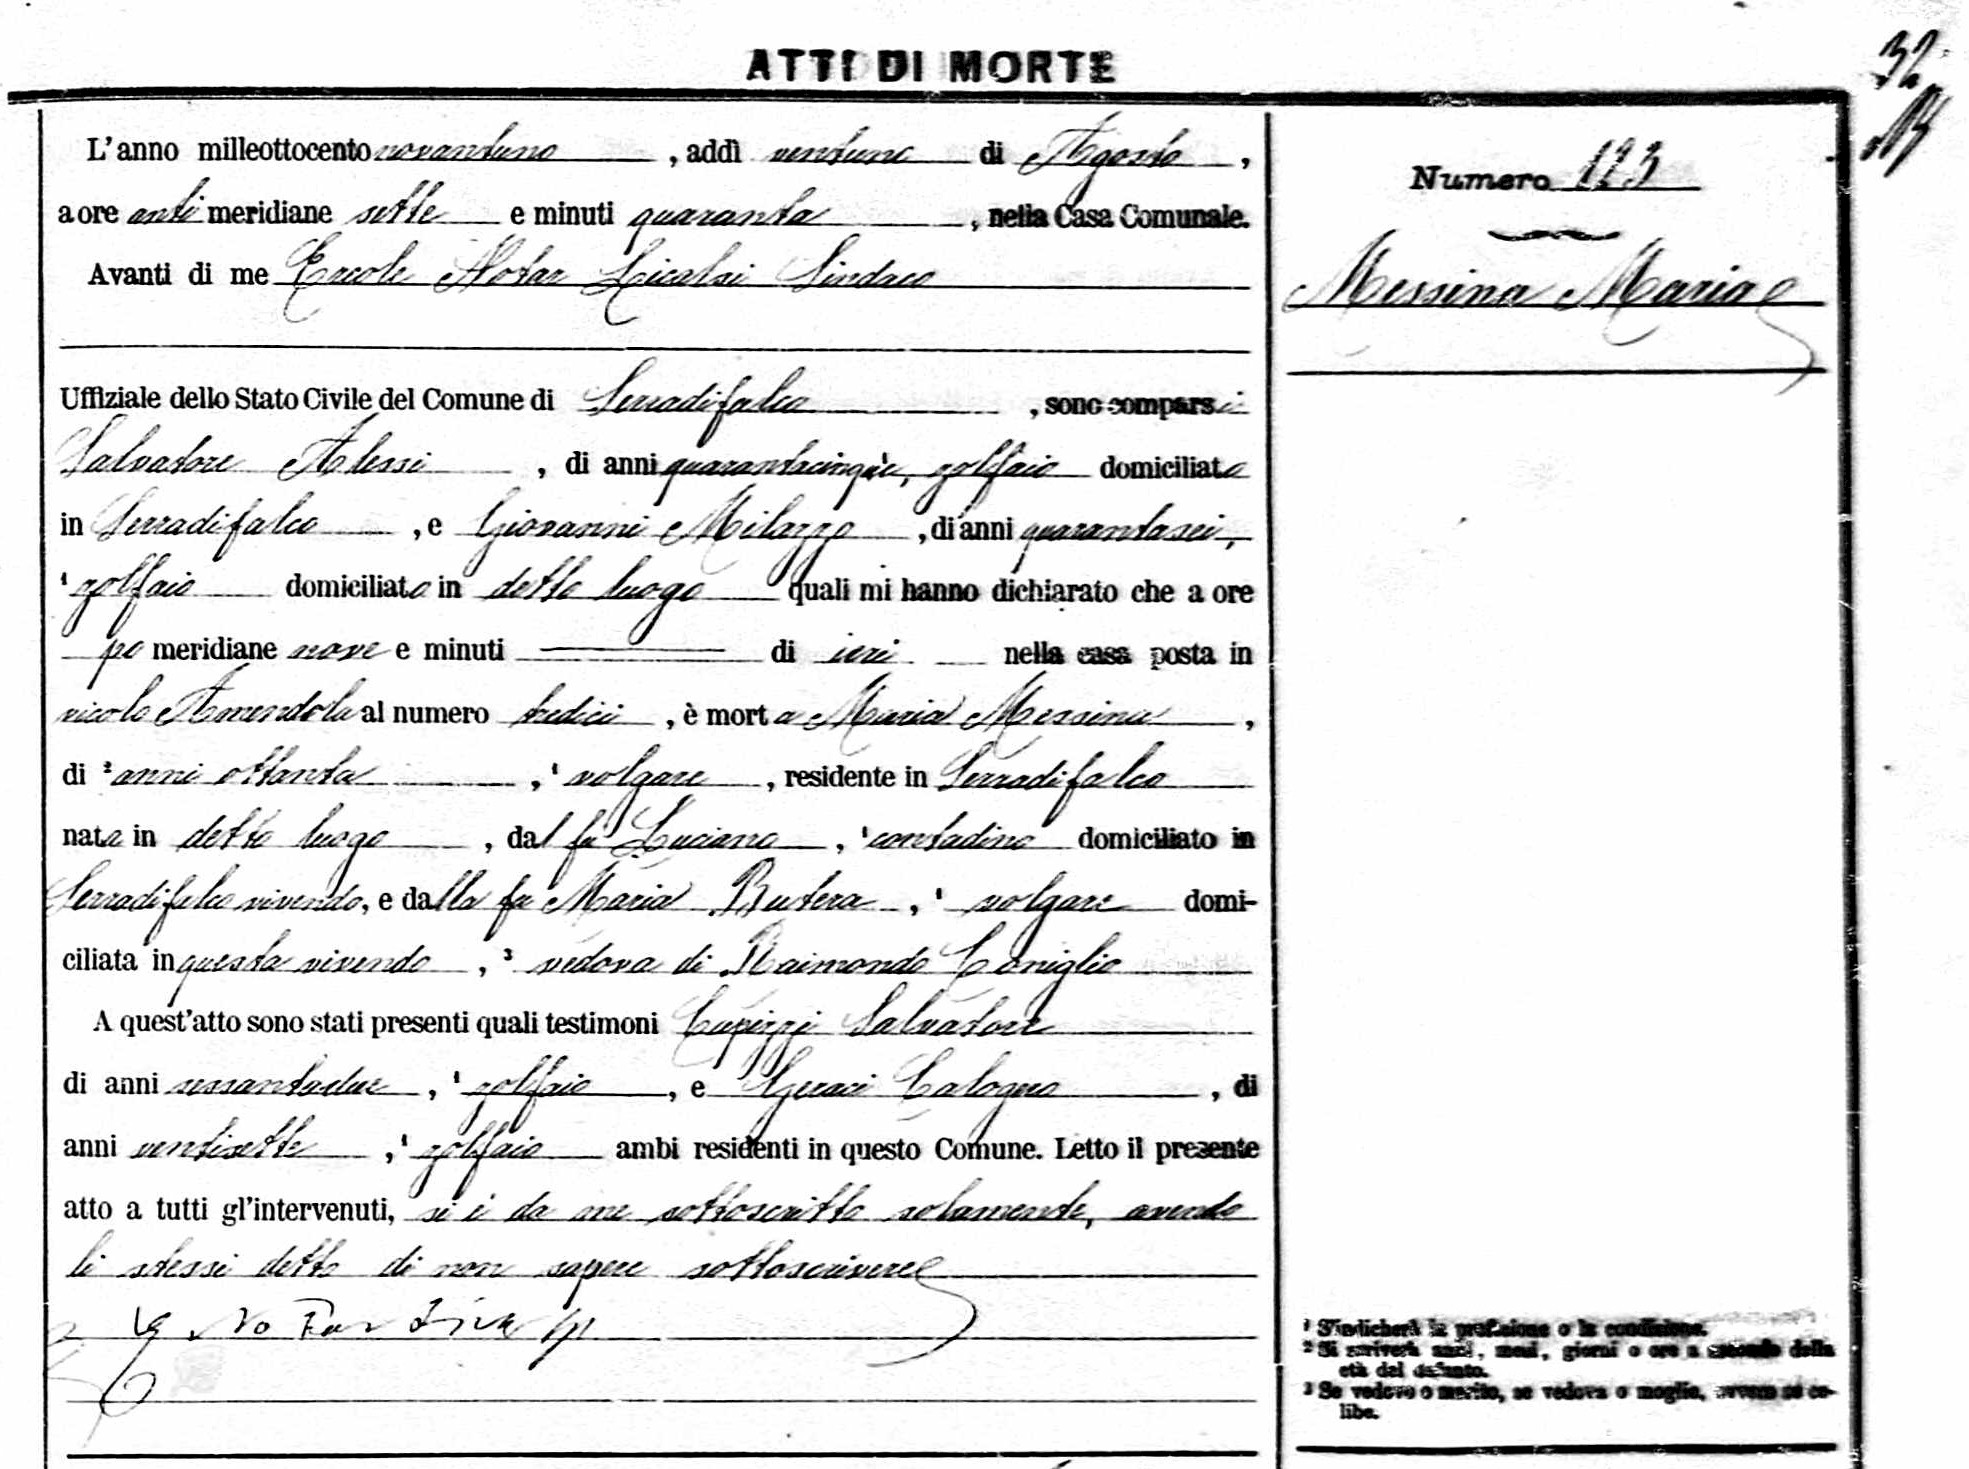 ATTI DI MORTE
32
L'anno milleottocento novantuno, addì ventuno di Agosto,
a ore anti meridiane sette e minuti quaranta, nella Casa Comunale.
Avanti di me Ercole Notar Licalsi Sindaco
Uffiziale dello Stato Civile del Comune di Serradifalco, sono comparsi
Salvatore Alessi, di anni quarantacinque, ¹ zolfaio domiciliato
in Serradifalco, e Giovanni Milazzo, di anni quarantasei,
¹ zolfaio domiciliato in detto luogo quali mi hanno dichiarato che a ore
po meridiane nove e minuti di ieri nella casa posta in
vicolo Amendola al numero tredici, è morta Maria Messina,
di ² anni ottanta, ¹ volgare, residente in Serradifalco
nata in detto luogo, dal fu Luciano, ¹ contadino domiciliato in
Serradifalco vivendo, e dalla fu Maria Butera, ¹ volgare domi-
ciliata in questa vivendo, ³ vedova di Raimondo Coniglio
A quest'atto sono stati presenti quali testimoni Cupizzi Salvatore
di anni sessantadue, ¹ zolfaio, e Geraci Calogero, di
anni ventisette, ¹ zolfaio ambi residenti in questo Comune. Letto il presente
atto a tutti gl'intervenuti, si è da me sottoscritto solamente, avendo
li stessi detto di non sapere sottoscrivere
Numero 123
Messina Maria
¹ S'indicherà la professione o la condizione.
² Si scriverà anni, mesi, giorni o ore a seconda della
età del defunto.
³ Se vedovo o marito, se vedova o moglie, ovvero se ce-
libe.